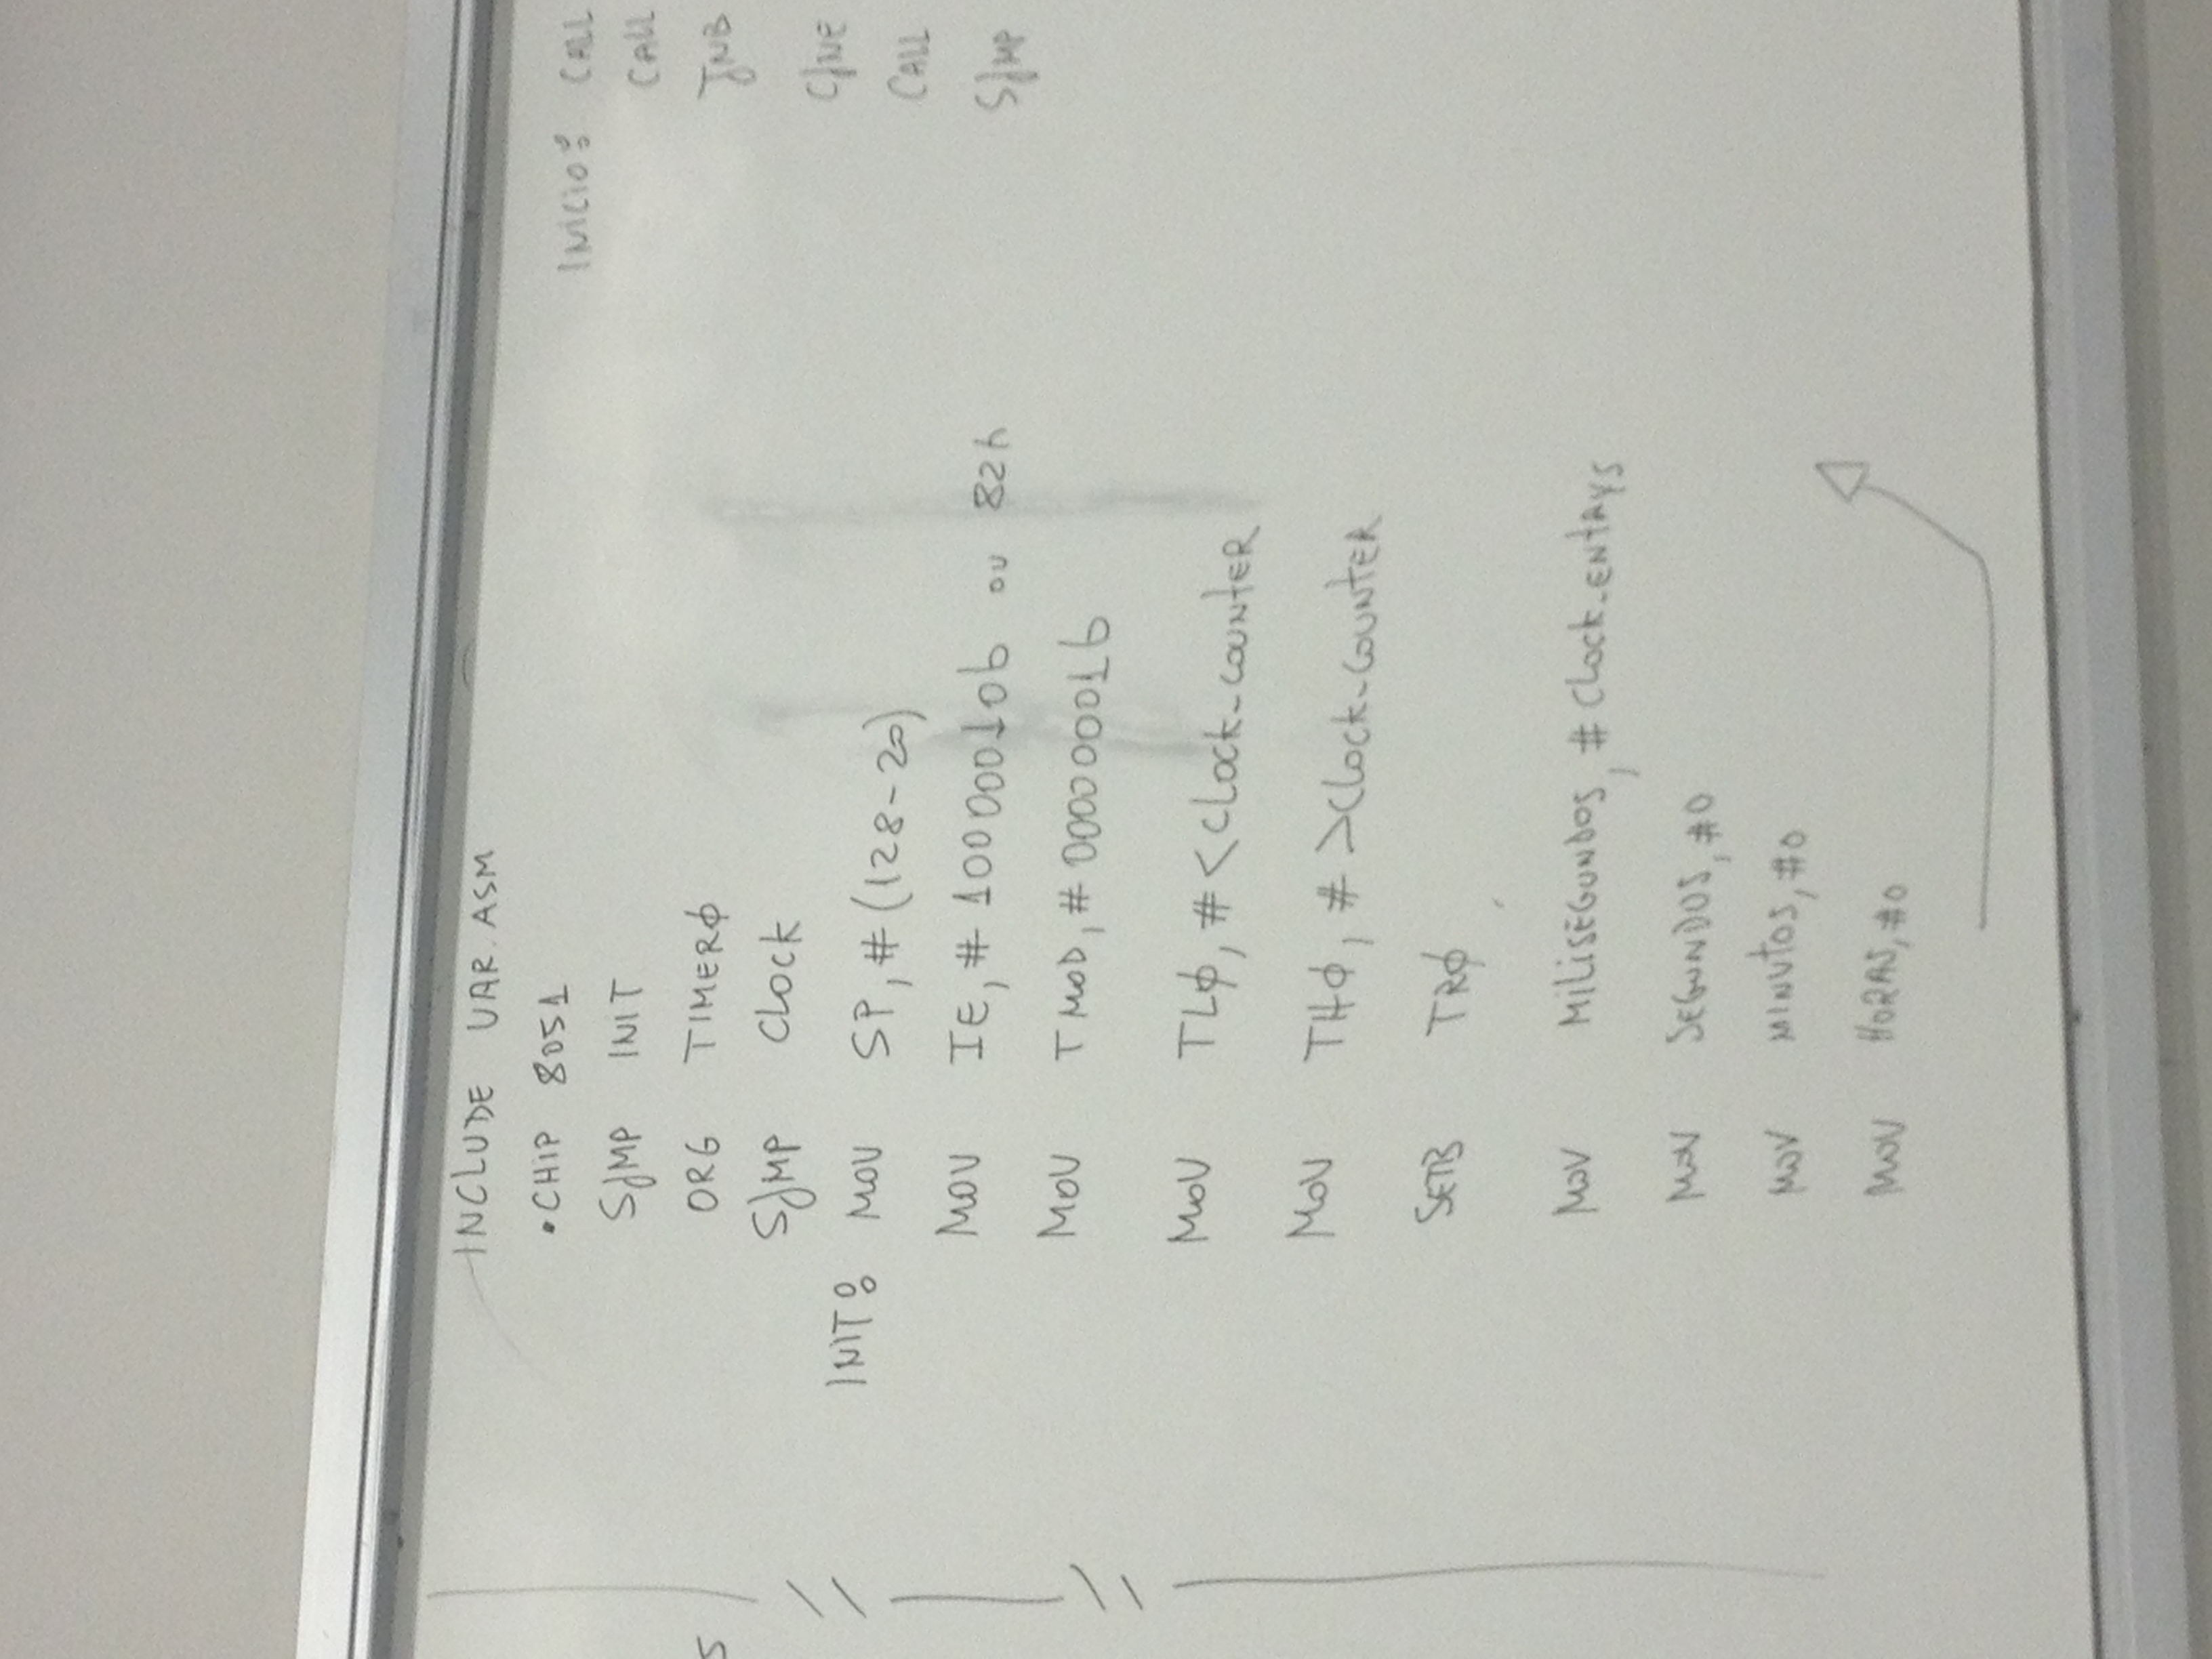 INCLUDE VAR.ASM
.CHIP 8051
SJMP INIT
ORG TIMERØ
SJMP Clock
INIT: MOV SP, #(128-20)
MOV IE, # 10000010b ou 82h
MOV TMOD, # 00000001b
MOV TLØ, # <Clock-COUNTER
MOV THØ, # >Clock-COUNTER
SETB TRØ
MOV MILISEGUNDOS, # Clock-ENTRYS
MOV SEGUNDOS, #0
MOV MINUTOS, #0
MOV HORAS, #0
INICIO: CALL
CALL
JNB
CJNE
CALL
SJMP
S